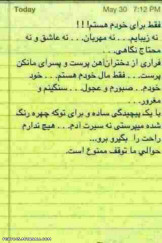 Today May 30 7:12 PM
فقط برای خودم هستم!!!
نه زیبایم... نه مهربان... نه عاشق و نه
محتاج نگاهی...
فراری از دختران آهن پرست و پسرای مانکن
پرست... فقط مال خودم هستم... خود
خودم.. صبورم و عجول... سنگینم و
مغرور...
با یک پیچیدگی ساده و برای توکه چهره رنگ
شده میپرستی نه سیرت آدم... هیچ ندارم
راحت را بگیرو برو...
حوالی ما توقف ممنوع است.